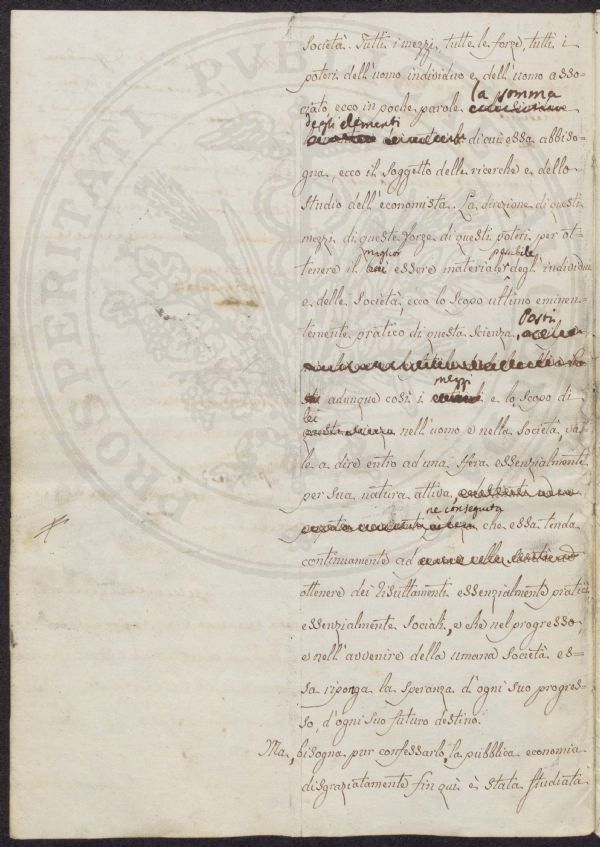 Società. Tutti i mezzi, tutte le forze, tutti i
poteri dell'uomo individuo e dell'uomo asso-
ciato ecco in poche parole la somma
degli elementi di cui essa abbiso-
gna, ecco il soggetto delle ricerche e dello
studio dell'economista. La direzione di questi
mezzi, di queste forze, di questi poteri per ot-
tenere il maglior essere materiale possibile degl'individui
e delle Società, ecco lo scopo ultimo eminen-
temente pratico di questa scienza. Posti
adunque così i mezzi e lo scopo di
lei nell'uomo e nella Società, va-
le a dire entro ad una sfera essenzialmente
per sua natura attiva, ne conseguita
che essa tenda
continuamente ad
ottenere dei risultamenti essenzialmente pratici,
essenzialmente sociali, e che nel progresso,
e nell'avvenire della umana Società es-
sa riponga la speranza d'ogni suo progres-
so, d'ogni suo futuro destino.
Ma, bisogna pur confessarlo, la pubblica economia
disgraziatamente fin qui è stata studiata
PROSPERITATI PUBLIC